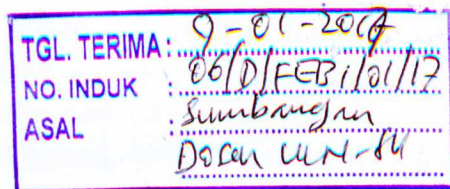 TGL. TERIMA : 9-01-2017
NO. INDUK : 06/D/FEBI/01/17
ASAL : Sumbangan
Dosen UIN-SU